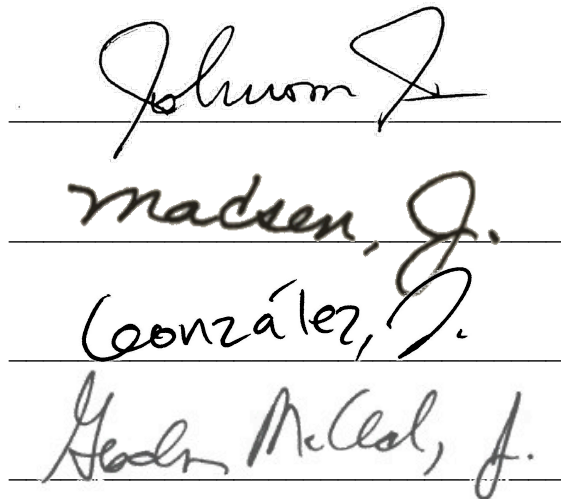 Johnson J
Madsen, J.
González, J.
Gordon McCloud, J.